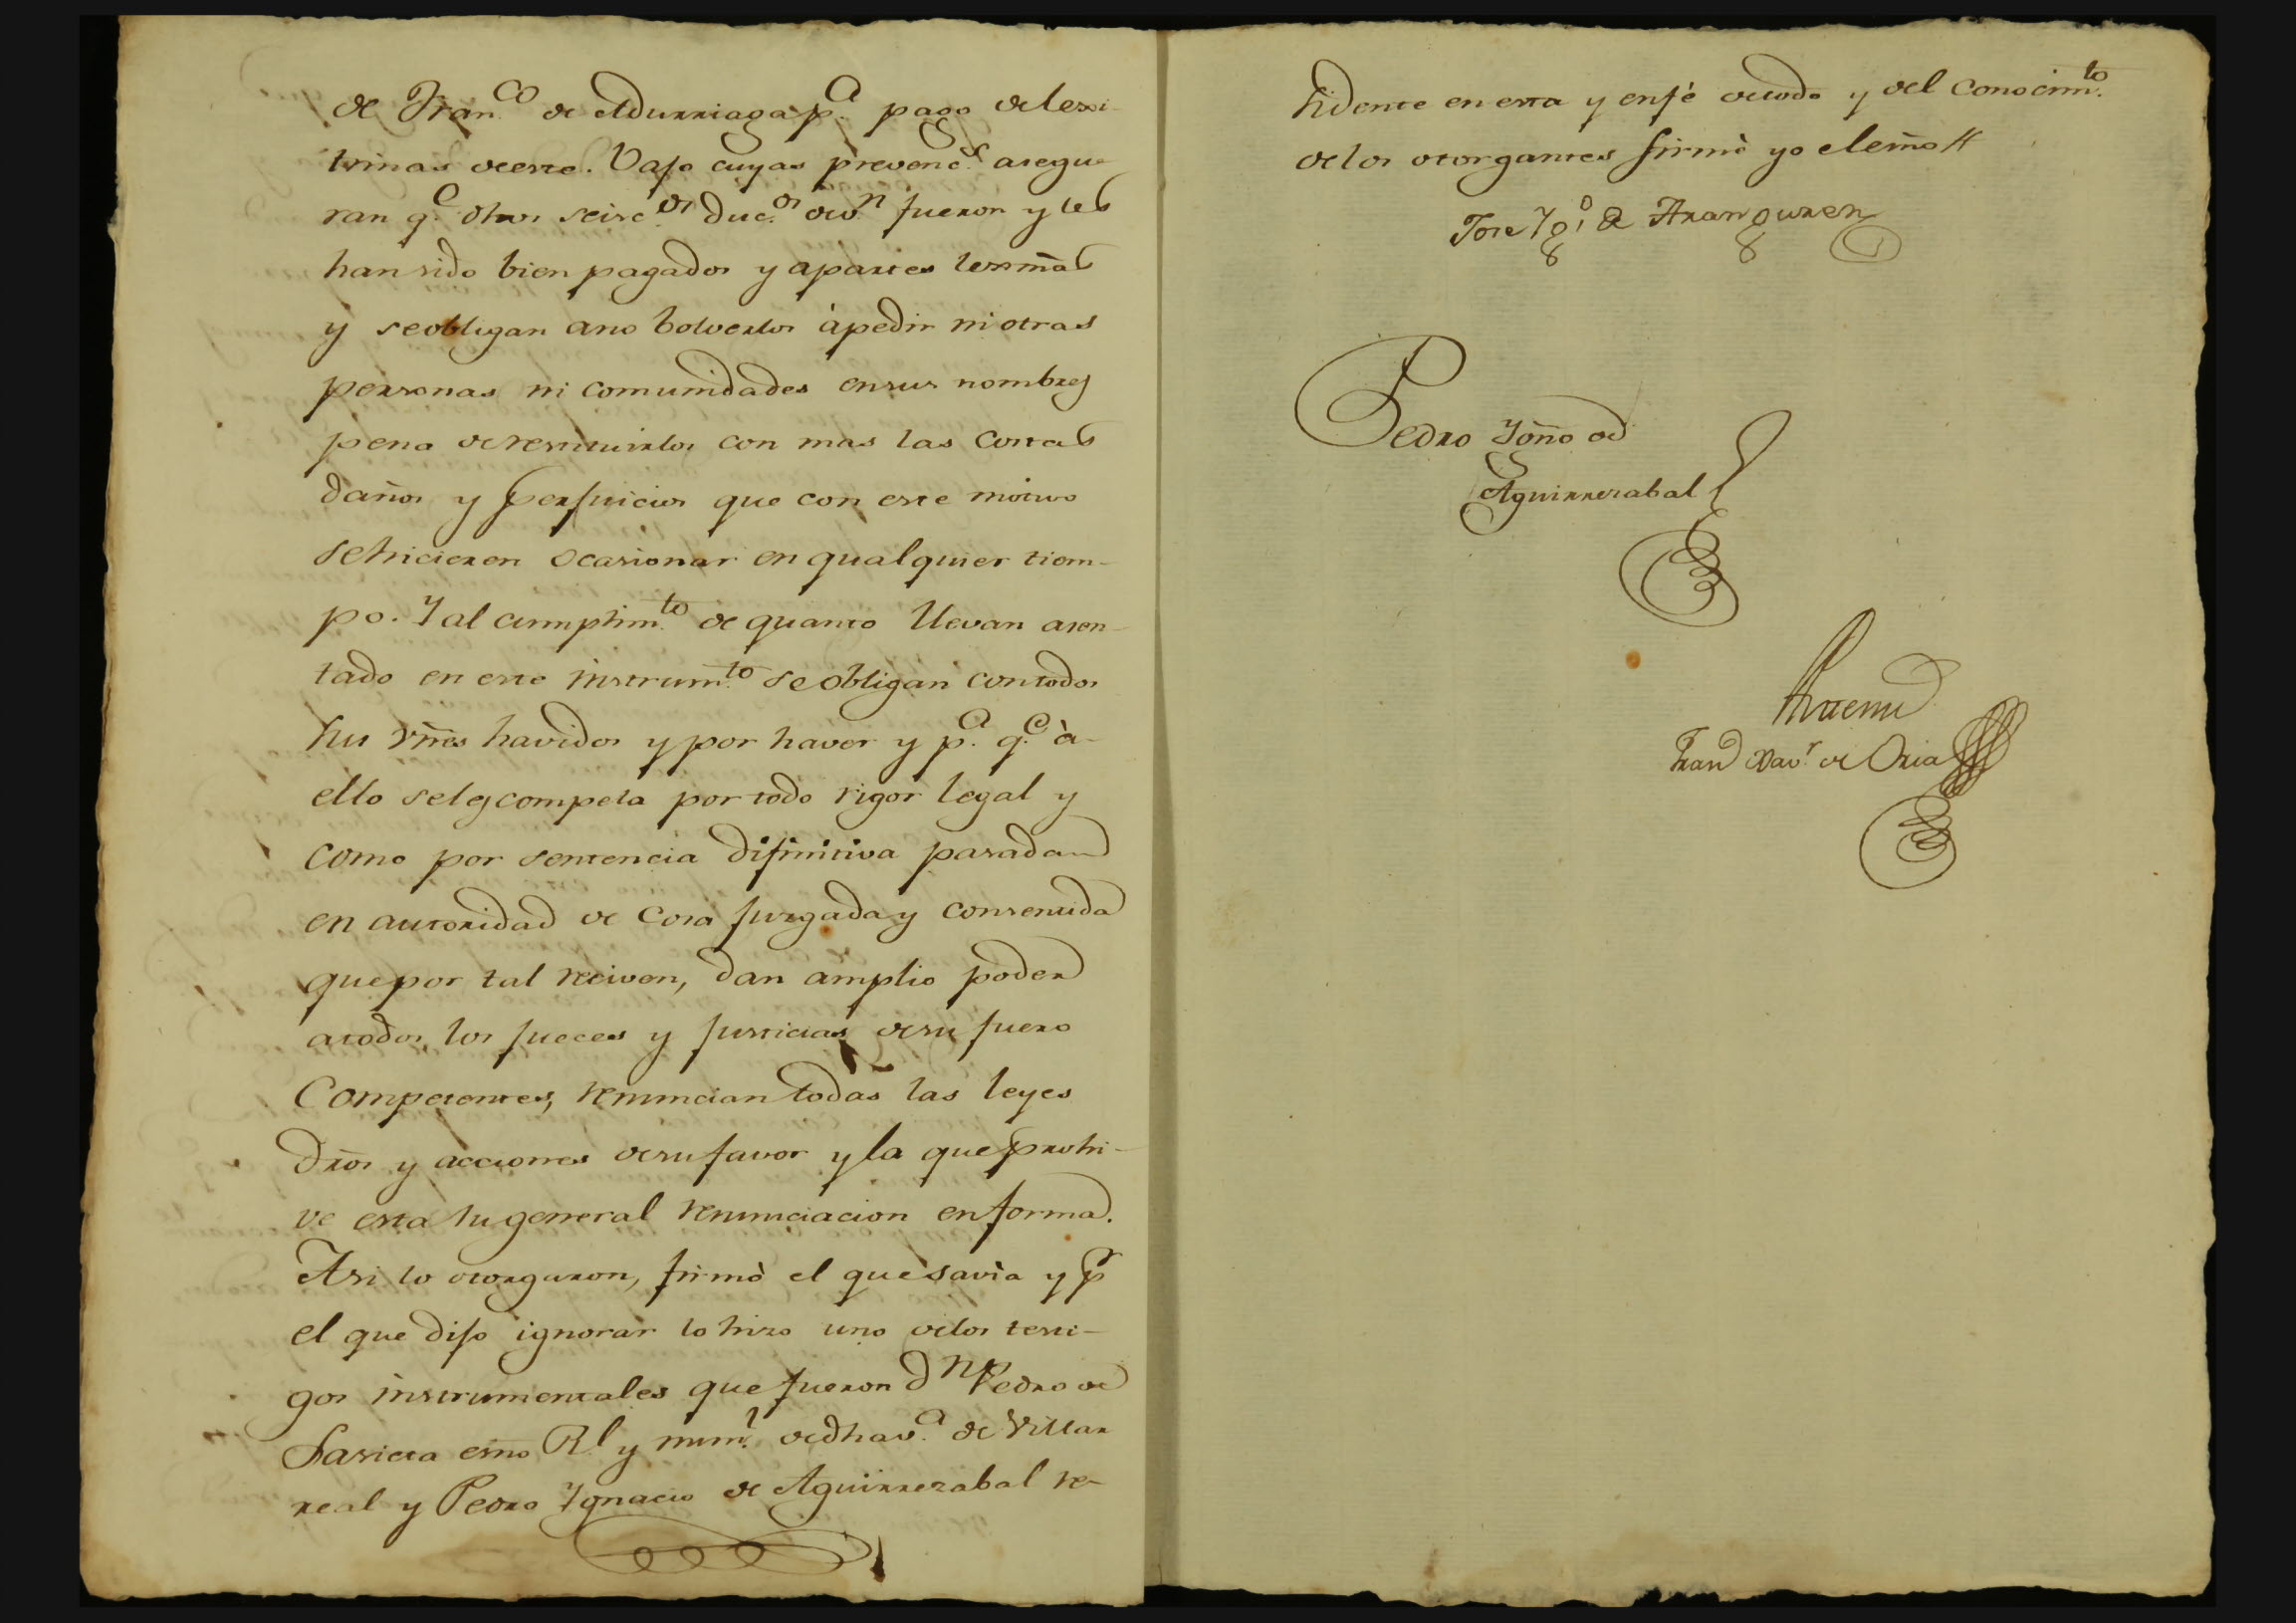 de Fran.co de Adurriaga p.a pago de lexi-
timas de este. Vajo cuyas prevenc.s asegu-
ran q.e dhos seisc.os duc.os de v.n fueron y les
han sido bien pagados y apartes lexmas
y se obligan ano bolverlos à pedir ni otras
personas ni comunidades en sus nombres
pena de restituirlos con mas las costas
daños y perjuicios que con este motivo
se hicieren ocasionar en qualquier tiem-
po. Y al cumplim.to de quanto llevan asen-
tado en este instrum.to se obligan con todos
sus vñes havidos y por haver y p.a q.e à
ello seles compela por todo rigor legal y
como por sentencia difinitiva pasada
en autoridad de Cosa juzgada y consentida
que por tal reciven, dan amplio poder
a todos los jueces y justicias de su fuero
Competentes, renuncian todas las leyes
dros y acciones de su favor y la que prohi-
ve esta su general renunciacion en forma.
Asi lo otorgaron, firmò el que savìa y p.r
el que dijo ignorar lo hizo uno de los testi-
gos instrumentales que fueron d.n Pedro de
Lasieta esno R.l y num.l de dha v.a de Villar
real y Pedro Ygnacio de Aguirrezabal re-
sidente en esta y en fè de todo y del conocim.to
de los otorgantes firmè yo el esno //
Jose Yg.o de Aranguren
Pedro Ygño de
Aguirrezabal
Antemi
Fran Xav.r de Oria